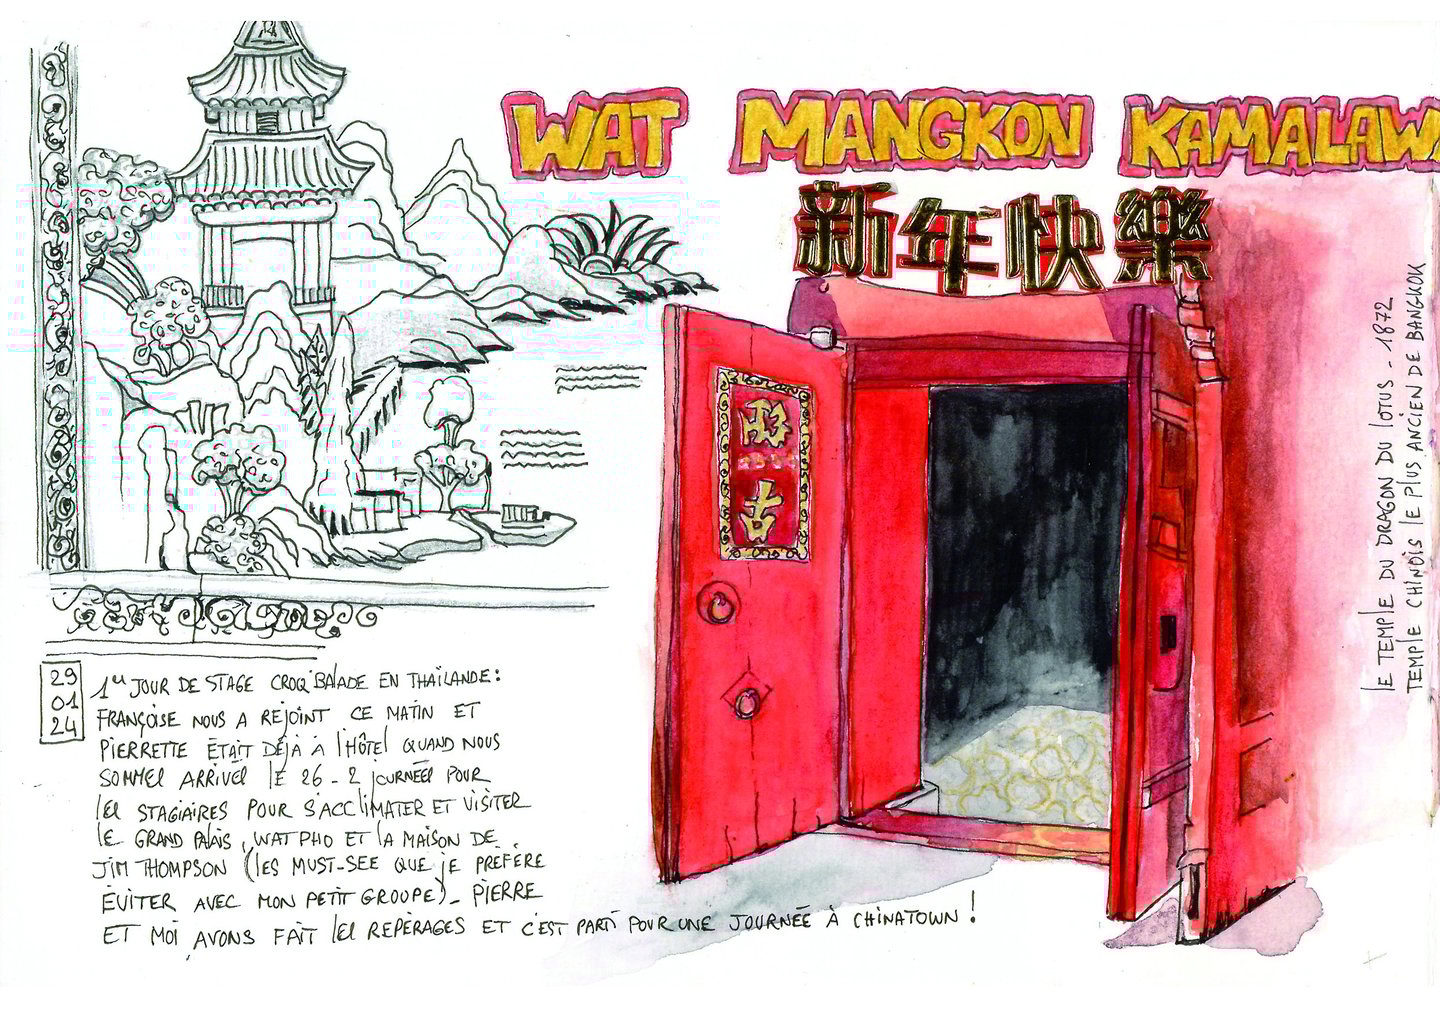 WAT MANGKON KAMALAWA
新年快樂
古
LE TEMPLE DU DRAGON DU LOTUS - 1872
TEMPLE CHINOIS LE PLUS ANCIEN DE BANGKOK
29
01
24
1er JOUR DE STAGE CROQ'BALADE EN THAÏLANDE :
FRANÇOISE NOUS A REJOINT CE MATIN ET
PIERRETTE ÉTAIT DÉJÀ À L'HÔTEL QUAND NOUS
SOMMES ARRIVÉS LE 26 - 2 JOURNÉES POUR
LES STAGIAIRES POUR S'ACCLIMATER ET VISITER
LE GRAND PALAIS, WAT PHO ET LA MAISON DE
JIM THOMPSON (LES MUST-SEE QUE JE PRÉFÈRE
ÉVITER AVEC MON PETIT GROUPE) - PIERRE
ET MOI AVONS FAIT LES REPÉRAGES ET C'EST PARTI POUR UNE JOURNÉE À CHINATOWN !